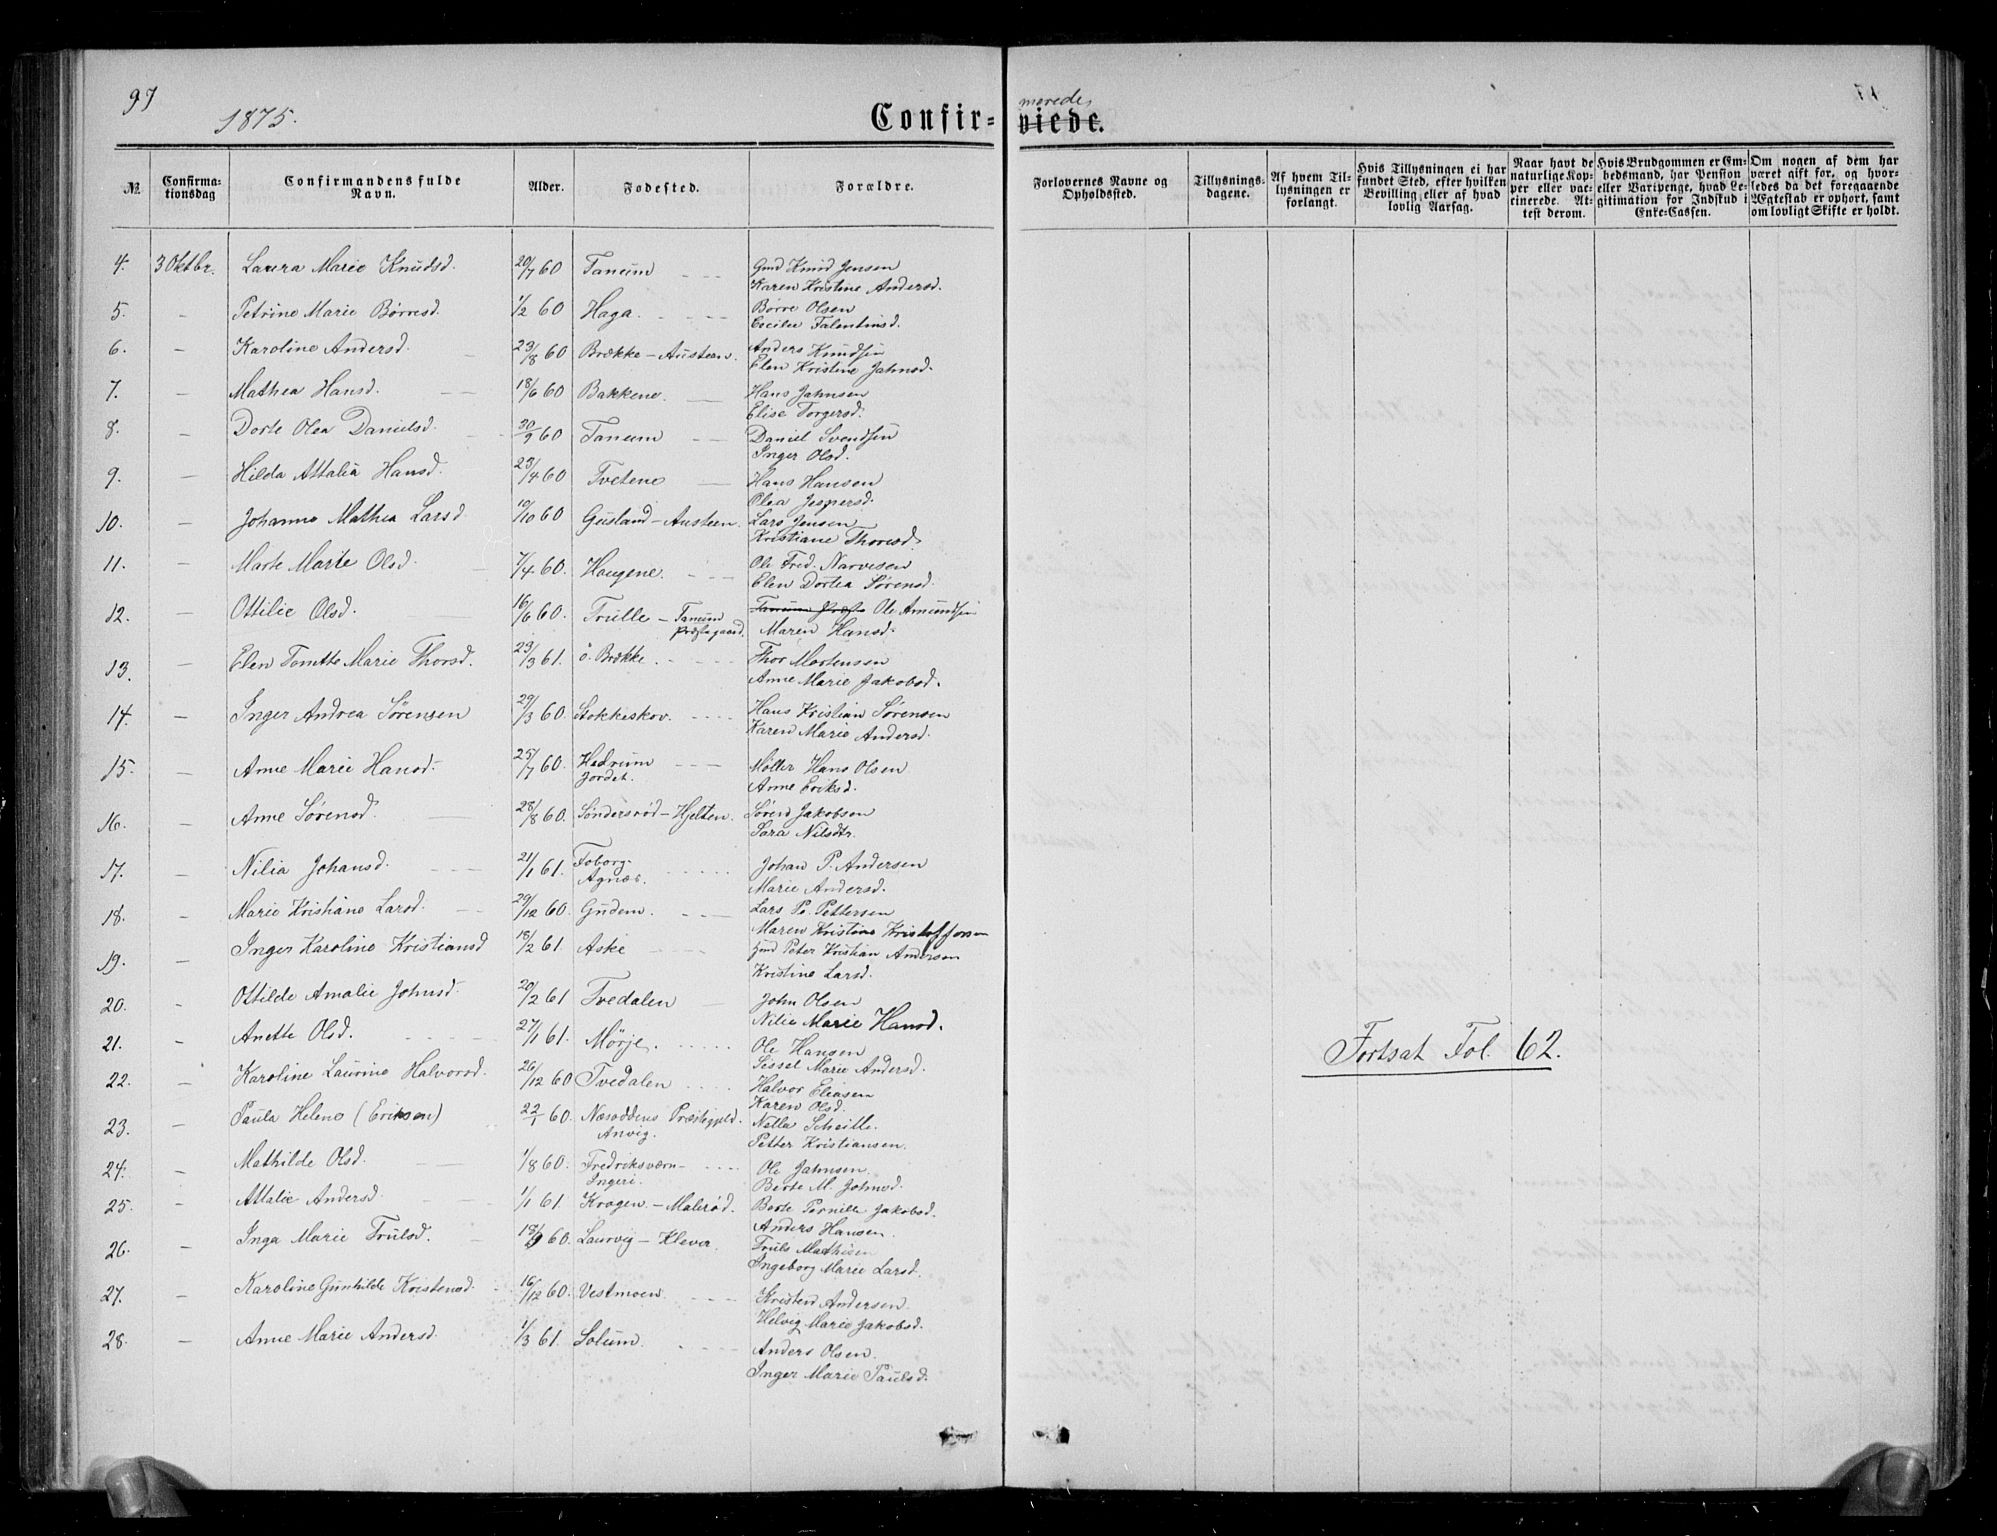 97
1875.
Confir-
merede,
viede.
№
Confirma-
tionsdag
Confirmandens fulde
Navn.
Alder.
Fødested.
Forældre.
Forlovernes Navne og
Opholdssted.
Tillysnings-
dagene.
Af hvem Til-
lysningen er
forlangt.
Hvis Tillysningen ei har
fundet Sted, efter hvilken
Bevilling eller af hvad
lovlig Aarsag.
Naar havt de
naturlige Kop-
per eller vac-
cinerede. At-
test derom.
Hvis Brudgommen er Em-
bedsmand, har Pension
eller Varipenge, hvad Le-
gitimation for Indskud i
Enke-Cassen.
Om nogen af dem har
været gift før, og hvor-
ledes da det foregaaende
Ægteskab er ophørt, samt
om lovligt Skifte er holdt.
4. 3 Oktbr. Laura Marie Knudsd. 20/7 60 Tanum Gmd Knud Jensen
Karen Kristine Andersd.
5. – Petrine Marie Børresd. 1/2 60 Haga. Børre Olsen
Cecilie Falentinsd.
6. – Karoline Andersd. 23/8 60 Brække – Austeen. Anders Knudsen
Elen Kristine Jahnsd.
7. – Mathea Hansd. 18/6 60 Bakkene. Hans Jahnsen
Elise Torgersd.
8. – Dorte Olea Danielsd. 30/9 60 Tanum Daniel Svendsen
Inger Olsd.
9. – Hilda Attalia Hansd. 23/4 60 Tvetene Hans Hansen
Olea Jespersd.
10. – Johanne Mathea Larsd. 10/10 60 Gusland – Austeen. Lars Jensen
Kristiane Thoresd.
11. – Marte Marie Olsd. 7/4 60. Haugene. Ole Fred. Narvesen
Elen Dortea Sørensd.
12. – Ottilie Olsd. 16/6 60. Trulle – Tanum Ole Amundsen
Præstegaard. Maren Hansd.
13. – Elen Tomitte Marie Thorsd. 23/3 61. ö. Brække. Thor Mortensen
Anne Marie Jakobsd.
14. – Inger Andrea Sørensen 29/3 60. Stokkeskov. Hans Kristian Sørensen
Karen Marie Andersd.
15. – Anne Marie Hansd. 25/7 60. Hedrum Møller Hans Olsen
Jordet. Anne Eriksd.
16. – Anne Sørensd. 28/8 60. Søndersrød – Hjelten. Søren Jakobsen
Sara Nilsdtr.
17. – Nilia Johansd. 21/1 61. Foborg. Johan P. Andersen
Agnæs. Marie Andersd.
18. – Marie Kristiane Larsd. 29/12 60. Gudem. Lars Po. Pettersen
Maren Kristine Kristoffersen
19. – Inger Karoline Kristiansd 18/2 61. Aske Gmd Peter Kristian Andersen
Kristine Larsd.
20. – Ottilde Amalie Johnsd. 20/2 61 Tvedalen John Olsen
Nilia Marie Hansd.
21. – Anette Olsd. 27/1 61. Mørje. Ole Hansen
Sissel Marie Andersd.
22. – Karoline Laurine Halvorsd. 26/12 60 Tvedalen Halvor Eliasen
Karen Olsd.
23. – Paula Helene (Eriksen) 22/1 60. Næsoddens Præstegjeld. Netta Scheitle.
Anvig. Petter Kristiansen.
24. – Mathilde Olsd. 1/8 60. Fredriksværn – Ole Jahnsen.
Ingeri. Berte M. Johnsd.
25. – Attalie Andersd. 1/1 61. Krogen. – Malerød. Berte Pernille Jakobsd.
Anders Hansen.
26. – Inga Marie Trulsd. 18/9 60. Laurvig – Klever. Truls Mathisen
Ingeborg Marie Larsd.
27. – Karoline Gunhilde Kristensd. 16/12 60. Vestmoen. Kristen Andersen.
Helvig Marie Jakobsd.
28. – Anne Marie Andersd. 1/3 61. Solum. Anders Olsen.
Inger Marie Paulsd.
Fortsat Fol. 62.